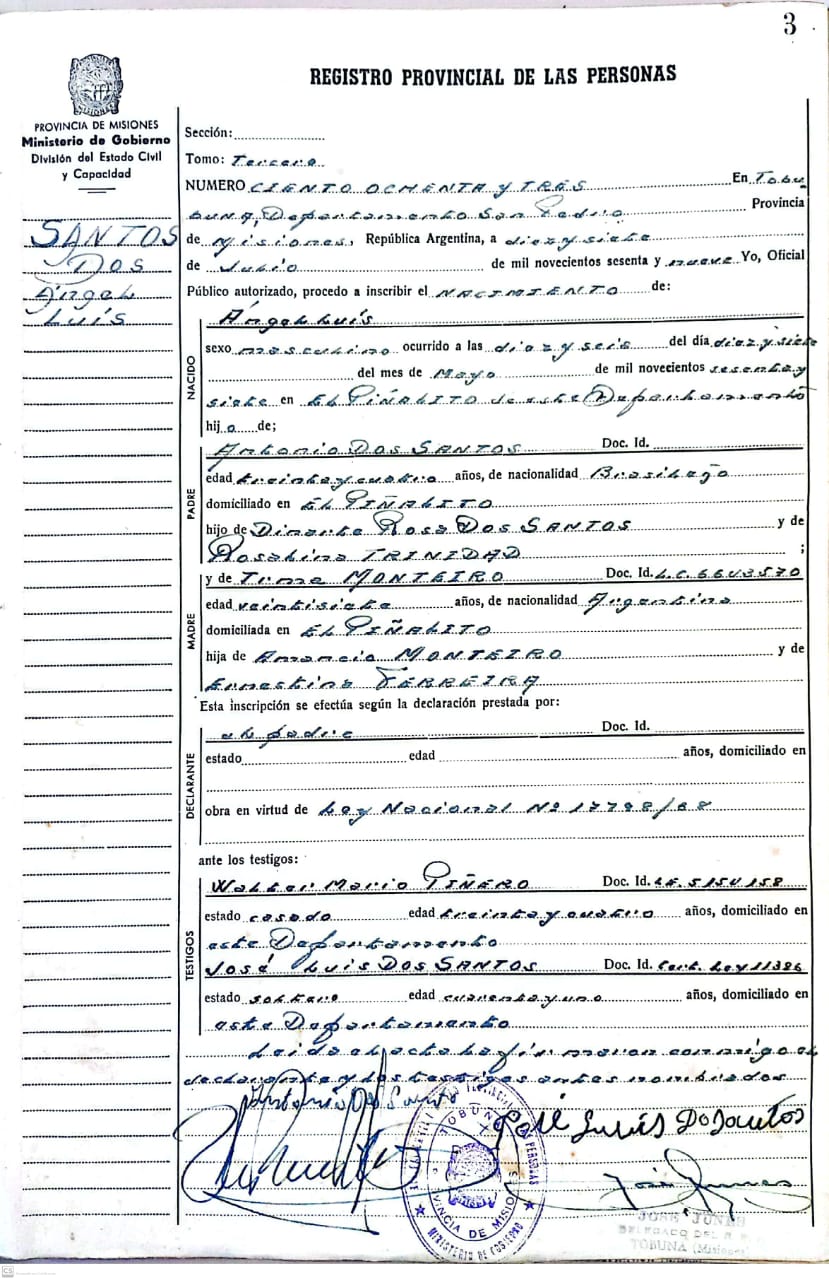 3
REGISTRO PROVINCIAL DE LAS PERSONAS
PROVINCIA DE MISIONES
Ministerio de Gobierno
División del Estado Civil
y Capacidad
SANTOS
DOS
Ángel
Luís
Sección:
Tomo: Tercero
NUMERO CIENTO OCHENTA y TRES En Tobu
buna, Departamento San Pedro Provincia
de Misiones, República Argentina, a diez y siete
de Julio de mil novecientos sesenta y nueve Yo, Oficial
Público autorizado, procedo a inscribir el NACIMIENTO de:
NACIDO
Ángel Luís
sexo masculino ocurrido a las diez y seis del día diez y siete
del mes de Mayo de mil novecientos sesenta y
siete en EL PIÑALITO de este Departamento
hijo de;
PADRE
Antonio DOS SANTOS Doc. Id.
edad treinta y cuatro años, de nacionalidad Brasileño
domiciliado en EL PIÑALITO
hijo de Rosa DOS SANTOS y de
Rosalina TRINIDAD ;
MADRE
y de Irma MONTEIRO Doc. Id. L.C. 6643570
edad veintisiete años, de nacionalidad Argentina
domiciliada en EL PIÑALITO
hija de Amancio MONTEIRO y de
Ernestina FERREIRA
Esta inscripción se efectúa según la declaración prestada por:
DECLARANTE
el padre Doc. Id.
estado edad años, domiciliado en
obra en virtud de Ley Nacional Nº 17798/68
ante los testigos:
TESTIGOS
Walter Mario PIÑERO Doc. Id. L.E. 5154158
estado casado edad treinta y cuatro años, domiciliado en
este Departamento
José Luis DOS SANTOS Doc. Id. Cert. Ley 11386
estado soltero edad cuarenta y uno años, domiciliado en
este Departamento
Leida el acta la firmaron conmigo el
declarante y los testigos antes nombrados
Antonio Do Santo
José Luis Do Santos
TOBUNA
PROVINCIA DE MISIONES
MINISTERIO DE GOBIERNO
JOSE JUNES
DELEGADO DEL R P
TOBUNA (Misiones)
CS